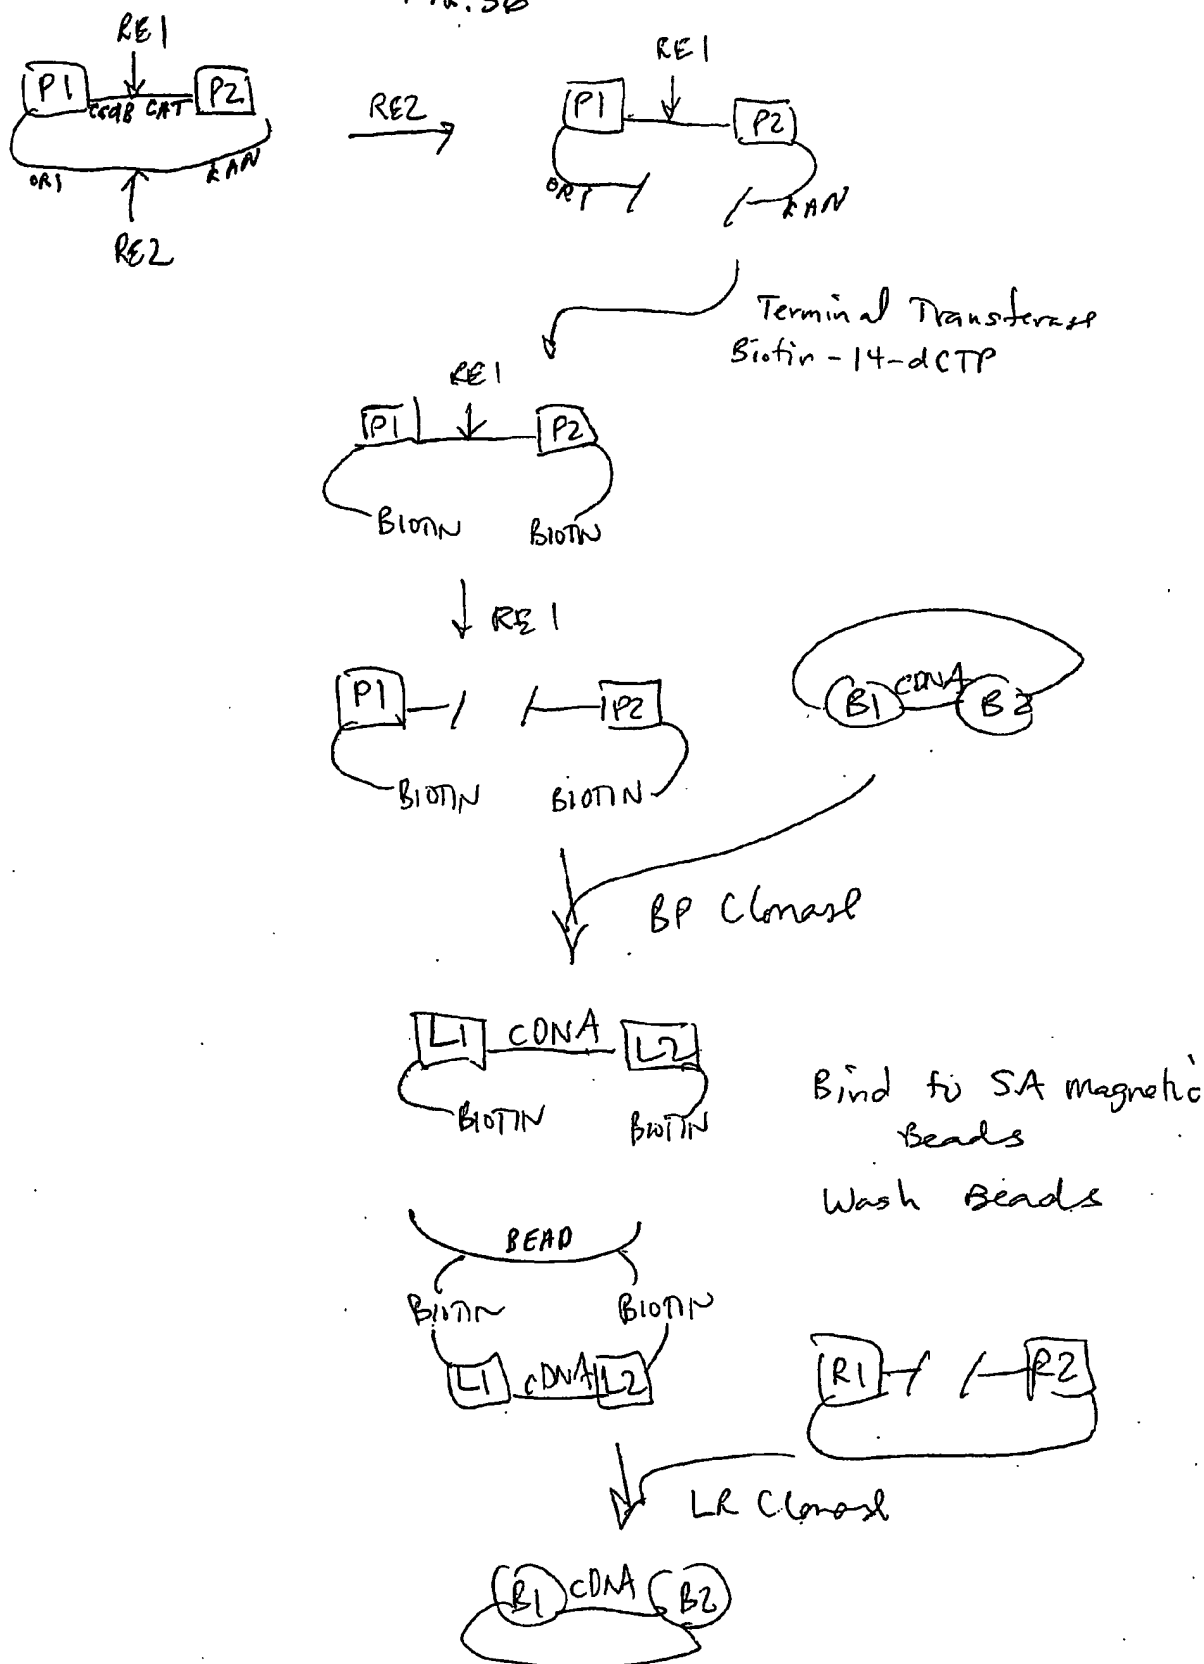 FIG. 3B
RE1
P1 ccdB CAT P2
ORI KAN
RE2
RE2
RE1
P1 P2
ORI KAN
Terminal Transferase
Biotin-14-dCTP
RE1
P1 P2
BIOTIN BIOTIN
RE1
P1 P2
BIOTIN BIOTIN
B1 CDNA B2
BP Clonase
L1 CDNA L2
BIOTIN BIOTIN
Bind to SA magnetic
Beads
Wash Beads
BEAD
BIOTIN BIOTIN
L1 cDNA L2
R1 R2
LR Clonase
B1 cDNA B2